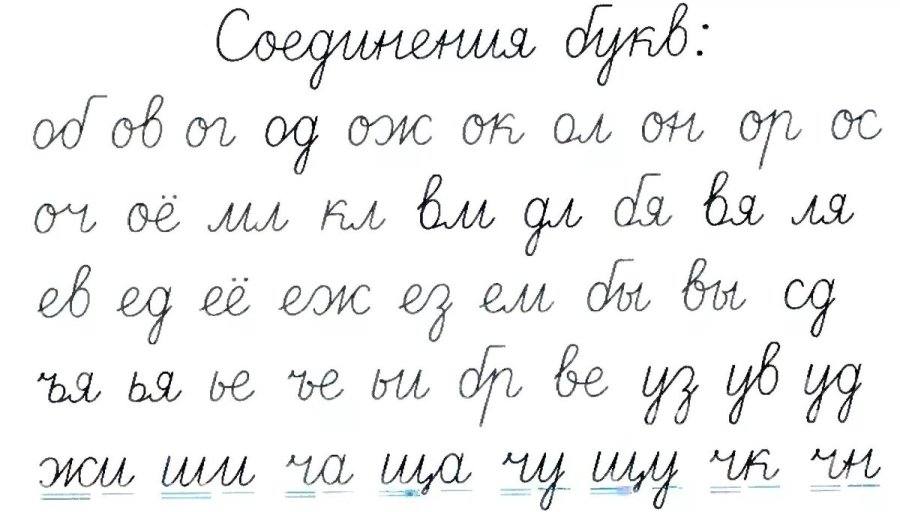 Соединения букв:
об ов ог од ож ок ол он ор ос
оч оё мл кл вм дл бя вя ля
ев ед её еж ез ем бы вы сд
ъя ья ье ъе ьи бр ве уз ув уд
жи ши ча ща чу щу чк чн